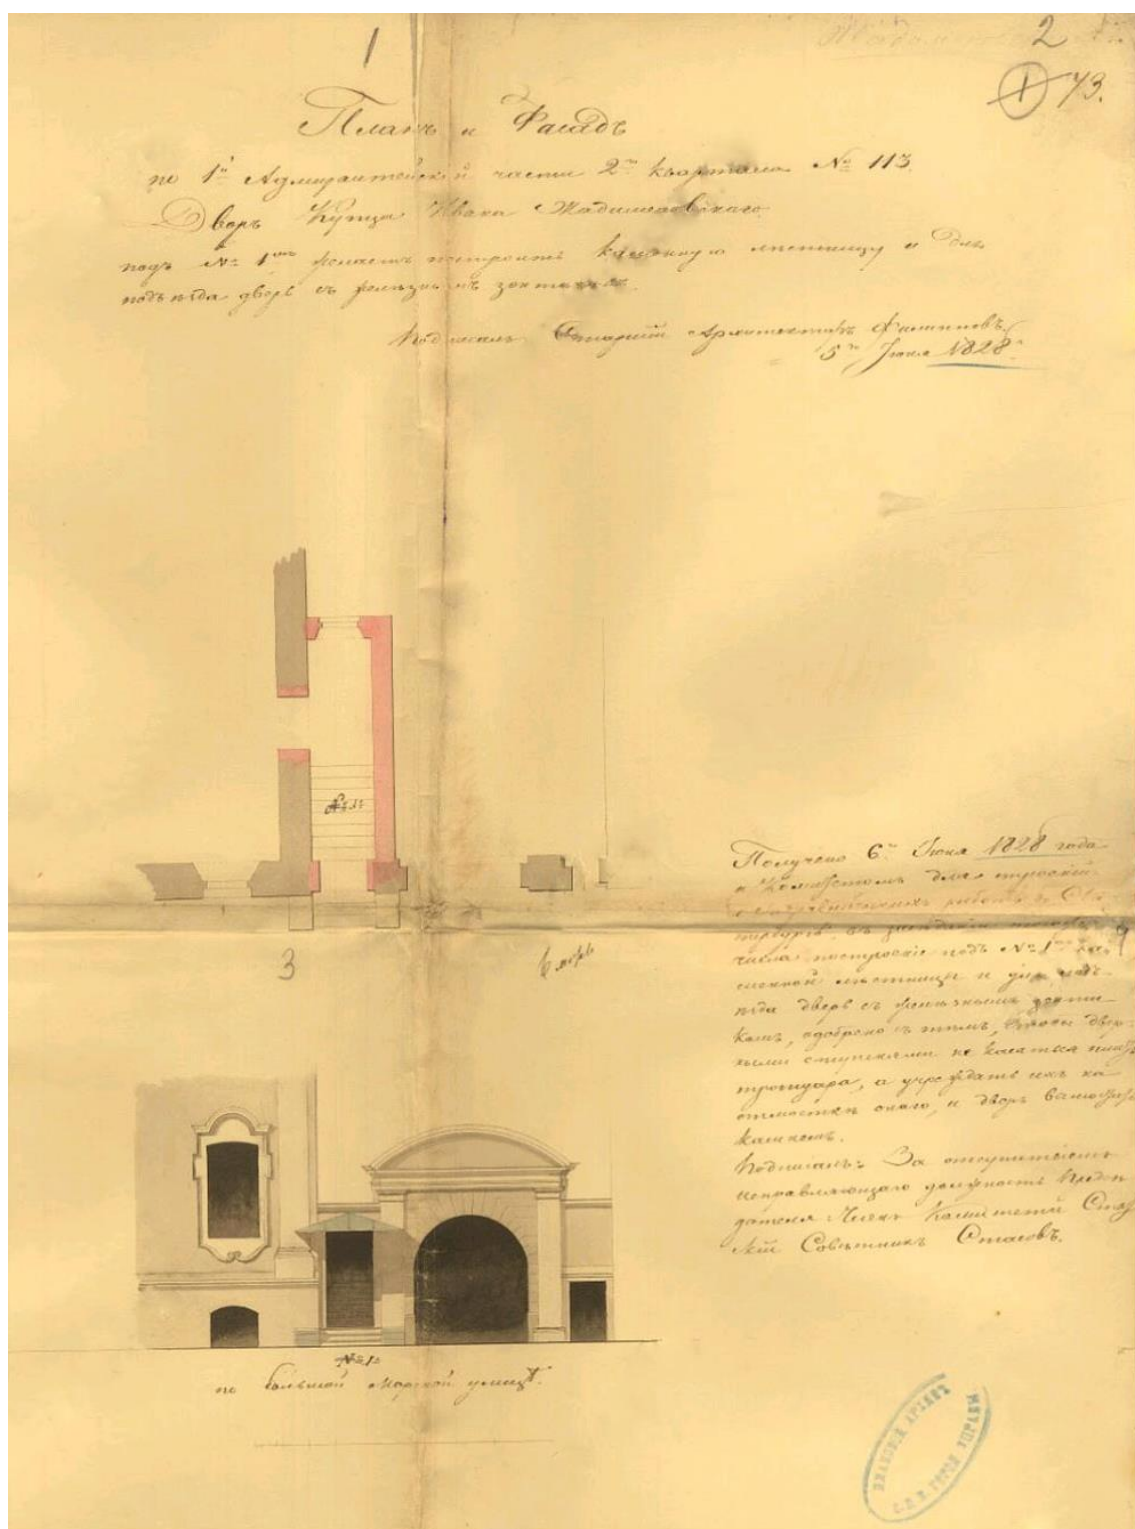 1
2
1 73.
Планъ и Фасадъ
по 1й Адмиралтейской части 2го квартала № 113.
Дворъ Купца Ивана
подъ № 1мъ желаетъ построить каменную лестницу и для
подъезда дверь съ железнымъ зонтикомъ.
Подписалъ Старшій Архитекторъ Филиповъ.
5го Июня 1828.
№ 1й
3
Получено 6го Июня 1828 года
и Комитетомъ для строеній
и работъ в Санк
числа построеніе подъ № 1мъ ка
менной лестницы и для подъ
езда дверь съ железнымъ зонти
комъ, одобрено съ темъ, чтобы двер
ными ступенями не касаться плитъ
тротуара, а учреждать ихъ на
отмостке онаго, и дворъ
камнемъ.
Подписалъ: За отсутствіемъ
исправляющаго должность Предсе
дателя Членъ Комитета Стат
скій Советникъ Стасовъ.
№ 1й
по большой морской улице.
ПЛАНОВЫЙ АРХИВЪ
С.П.Б. ГОРОД. УПРАВЫ